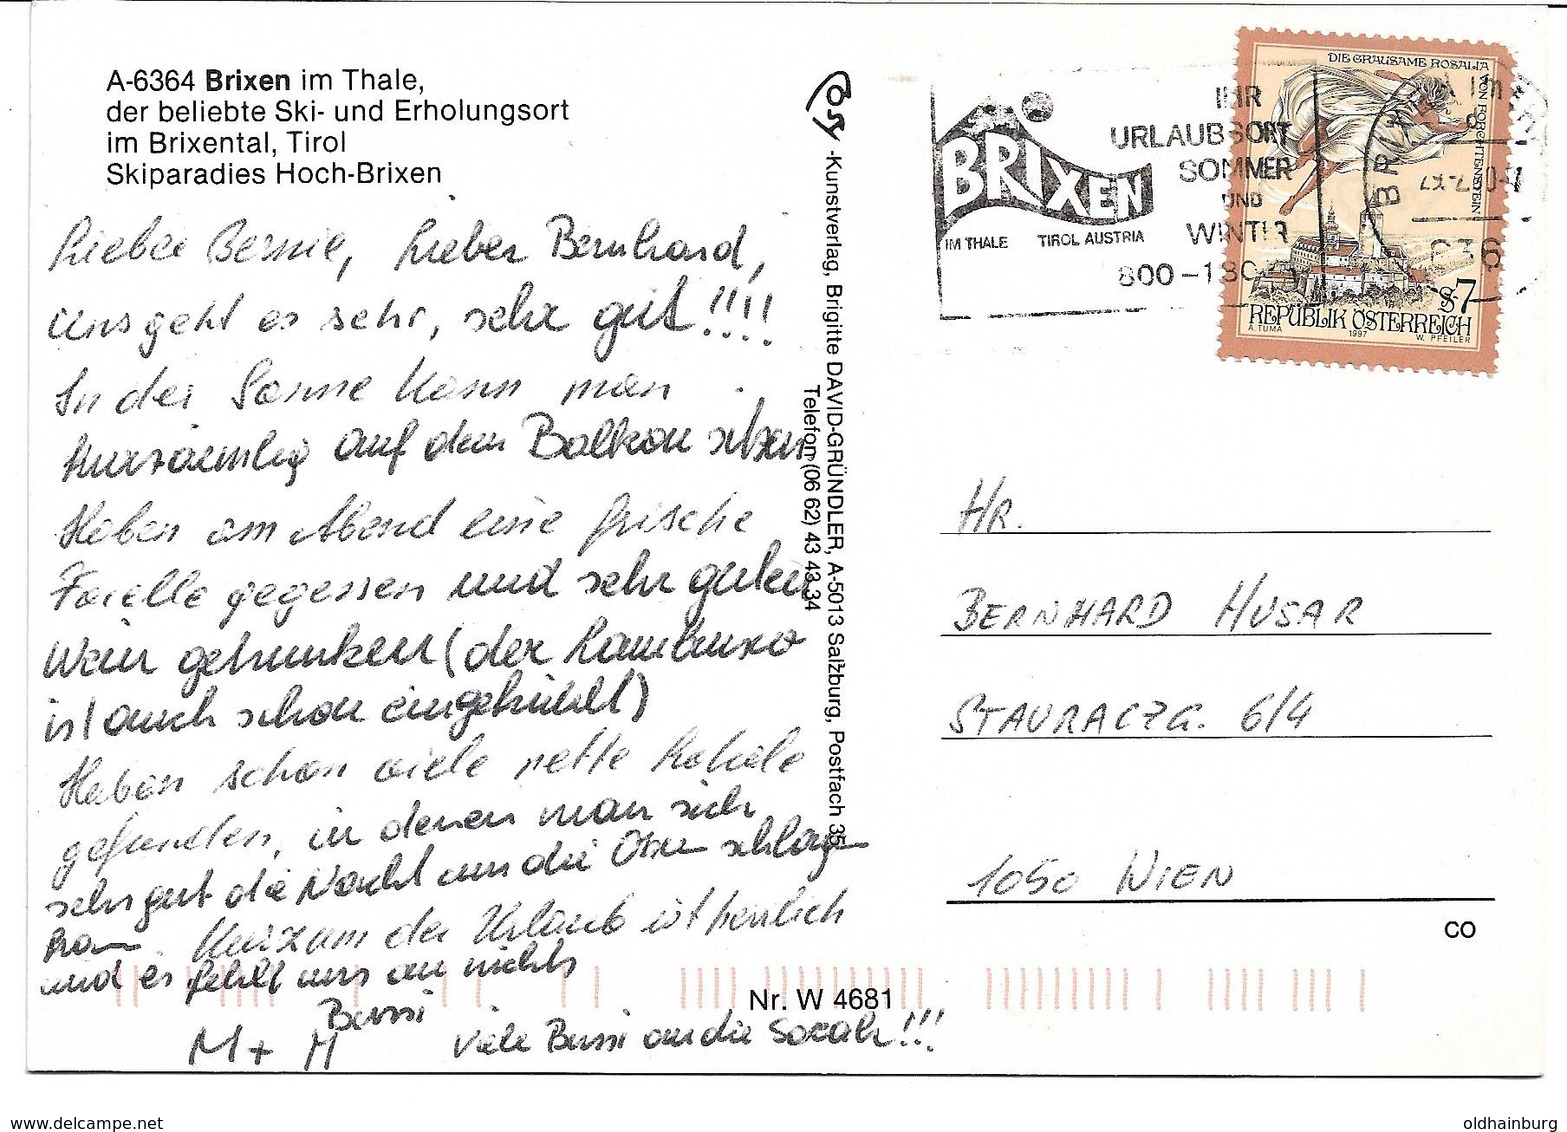 A-6364 Brixen im Thale,
der beliebte Ski- und Erholungsort
im Brixental, Tirol
Skiparadies Hoch-Brixen
Liebe Bernie, Lieber Bernhard,
uns geht es sehr, sehr gut!!!!
In der Sonne kann man
kurzärmlig auf dem Balkon sitzen
Haben am Abend eine frische
Forelle gegessen und sehr guten
Wein getrunken (der Lambrusco
ist auch schon eingekühlt)
Haben schon viele nette Lokale
gefunden, in denen man sich
sehr gut die Nacht um die Ohren schlagen
kann. Kurzum der Urlaub ist herrlich
und es fehlt uns an nichts
Bussi
M + M
Viele Bussi an die Sarah!!!
Cosy -Kunstverlag, Brigitte DAVID-GRÜNDLER, A-5013 Salzburg, Postfach 35
Telefon (06 62) 43 43 34
Nr. W 4681
BRIXEN
IM THALE TIROL AUSTRIA
IHR
URLAUBSORT
SOMMER
UND
WINTER
800-180
BRIXEN IM
636
DIE GRAUSAME ROSALIA
VON FORCHTENSTEIN
S7
REPUBLIK ÖSTERREICH
A. TUMA 1997 W. PFEILER
HR.
BERNHARD HUSAR
STAURACZG. 6/4
1050 WIEN
CO
www.delcampe.net
oldhainburg